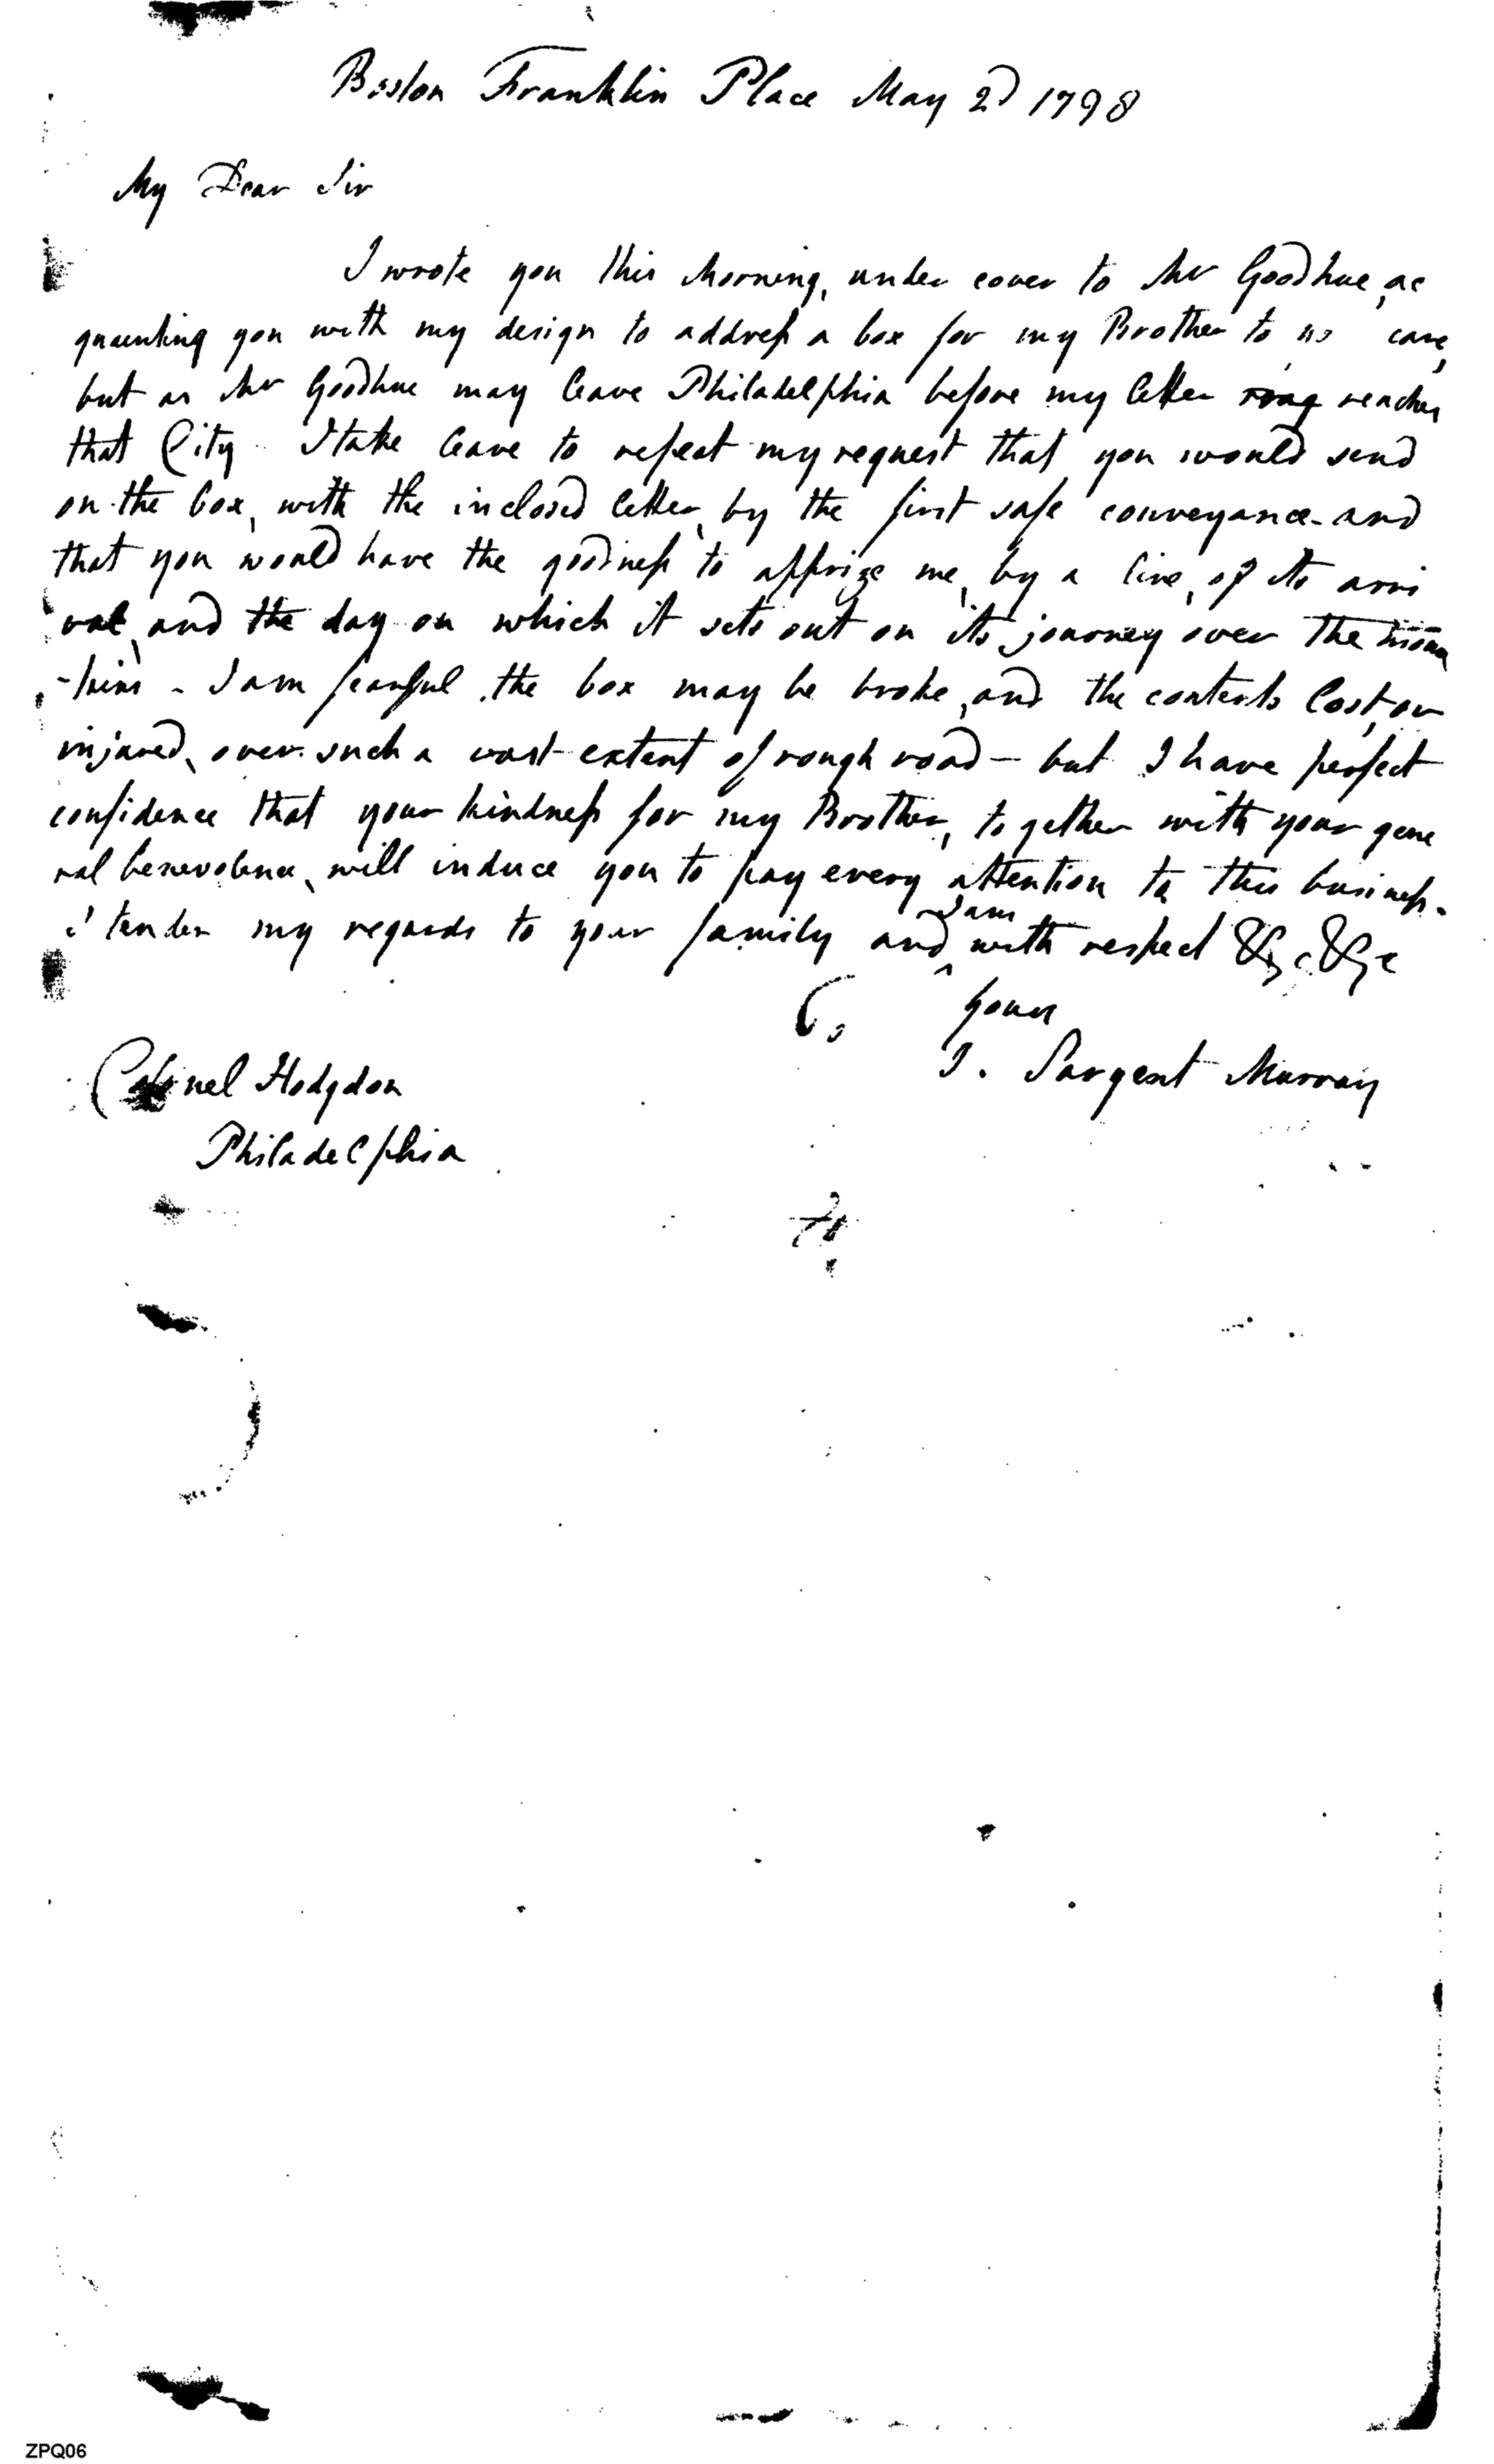 Boston Franklin Place May 2d 1798
My Dear Sir
I wrote you this Morning, under cover to Mr Goodhue, ac
quainting you with my design to address a box for my Brother to care,
but as Mr Goodhue may leave Philadelphia before my letter reaches
that City I take leave to repeat my request that you would send
on the box, with the inclosed letter, by the first safe conveyance- and
that you would have the goodness to apprize me, by a line, of its arri
val, and the day on which it sets out on its journey over the moun
-tains - I am fearful the box may be broke, and the contents lost, or
injured, over such a vast extent of rough road - but I have perfect
confidence that your kindness for my Brother, together with your gene
ral benevolence, will induce you to pay every attention to this business.
I tender my regards to your family and I am with respect &c &c
Yours
J. Sargent Murray
Colonel Hodgdon
Philadelphia
ZPQ06